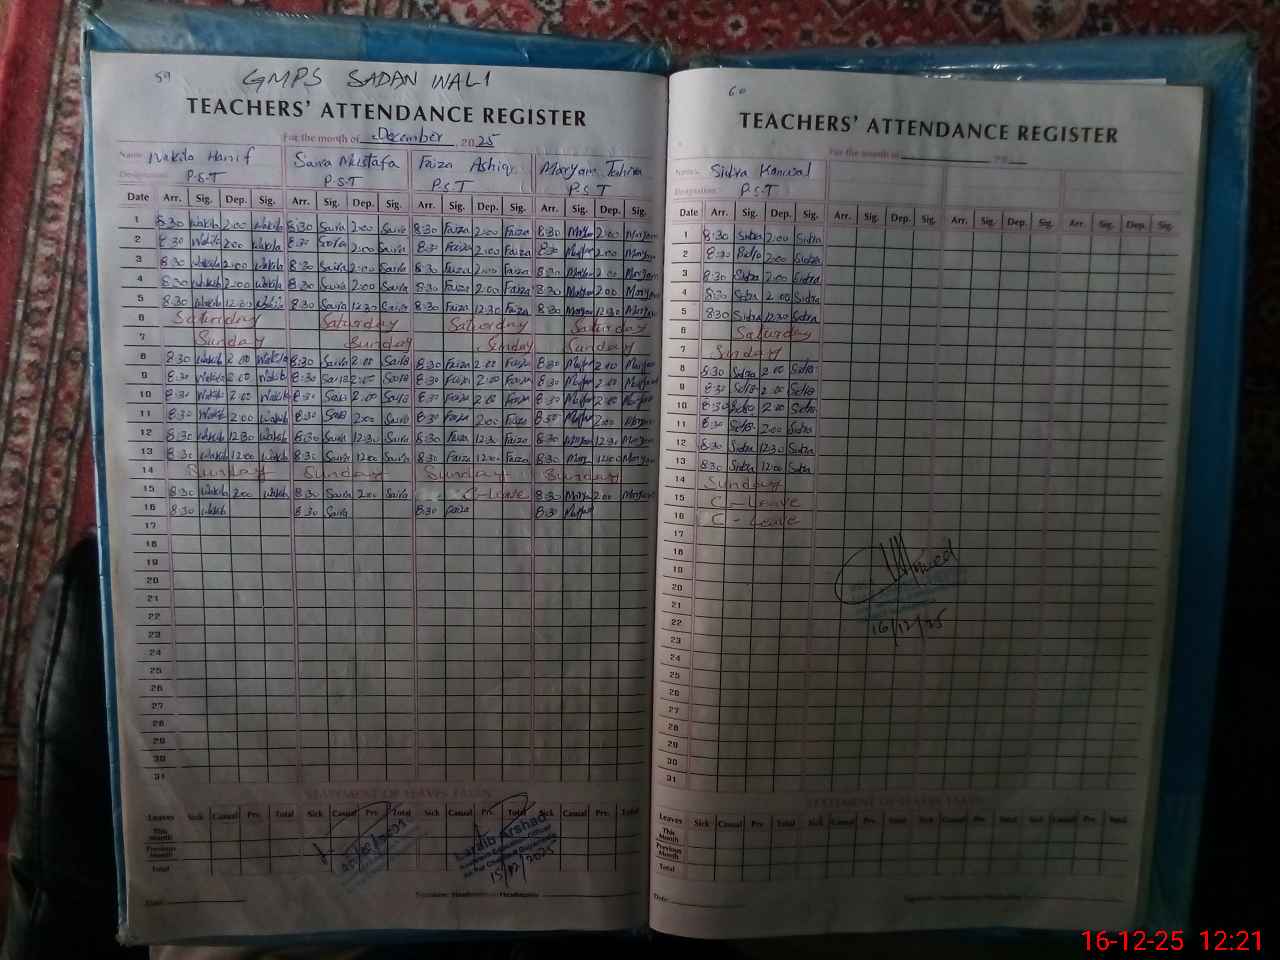 59 GMPS SADAN WALI
TEACHERS' ATTENDANCE REGISTER
For the month of December 2025
Name Wakila Hanif Saira Mustafa Faiza Ashiq Maryam Tahira
Designation P.S.T P.S.T P.S.T P.S.T
Date Arr. Sig. Dep. Sig. Arr. Sig. Dep. Sig. Arr. Sig. Dep. Sig. Arr. Sig. Dep. Sig.
1 8:30 Wakila 2:00 Wakila 8:30 Saira 2:00 Saira 8:30 Faiza 2:00 Faiza 8:30 Maryam 2:00 Maryam
2 8:30 Wakila 2:00 Wakila 8:30 Saira 2:00 Saira 8:30 Faiza 2:00 Faiza 8:30 Maryam 2:00 Maryam
3 8:30 Wakila 2:00 Wakila 8:30 Saira 2:00 Saira 8:30 Faiza 2:00 Faiza 8:30 Maryam 2:00 Maryam
4 8:30 Wakila 2:00 Wakila 8:30 Saira 2:00 Saira 8:30 Faiza 2:00 Faiza 8:30 Maryam 2:00 Maryam
5 8:30 Wakila 12:30 Wakila 8:30 Saira 12:30 Saira 8:30 Faiza 12:30 Faiza 8:30 Maryam 12:30 Maryam
6 Saturday Saturday Saturday Saturday
7 Sunday Sunday Sunday Sunday
8 8:30 Wakila 2:00 Wakila 8:30 Saira 2:00 Saira 8:30 Faiza 2:00 Faiza 8:30 Maryam 2:00 Maryam
9 8:30 Wakila 2:00 Wakila 8:30 Saira 2:00 Saira 8:30 Faiza 2:00 Faiza 8:30 Maryam 2:00 Maryam
10 8:30 Wakila 2:00 Wakila 8:30 Saira 2:00 Saira 8:30 Faiza 2:00 Faiza 8:30 Maryam 2:00 Maryam
11 8:30 Wakila 2:00 Wakila 8:30 Saira 2:00 Saira 8:30 Faiza 2:00 Faiza 8:30 Maryam 2:00 Maryam
12 8:30 Wakila 12:30 Wakila 8:30 Saira 12:30 Saira 8:30 Faiza 12:30 Faiza 8:30 Maryam 12:30 Maryam
13 8:30 Wakila 12:00 Wakila 8:30 Saira 12:00 Saira 8:30 Faiza 12:00 Faiza 8:30 Mary 12:00 Maryam
14 Sunday Sunday Sunday Sunday
15 8:30 Wakila 2:00 Wakila 8:30 Saira 2:00 Saira C-Leave 8:30 Maryam 2:00 Maryam
16 8:30 Wakila 8:30 Saira 8:30 Faiza 8:30 Maryam
17
18
19
20
21
22
23
24
25
26
27
28
29
30
31
STATEMENT OF LEAVES TAKEN
Leaves Sick Casual Prv. Total Sick Casual Prv. Total Sick Casual Prv. Total Sick Casual Prv. Total
This Month
Previous Month
Total
Laraib Arshad
15/12/2025
Date
Signature Headmaster/Headmistress
60
TEACHERS' ATTENDANCE REGISTER
For the month of 20
Name: Sidra Kanwal
Designation: P.S.T
Date Arr. Sig. Dep. Sig. Arr. Sig. Dep. Sig. Arr. Sig. Dep. Sig. Arr. Sig. Dep. Sig.
1 8:30 Sidra 2:00 Sidra
2 8:30 Sidra 2:00 Sidra
3 8:30 Sidra 2:00 Sidra
4 8:30 Sidra 2:00 Sidra
5 8:30 Sidra 12:30 Sidra
6 Saturday
7 Sunday
8 8:30 Sidra 2:00 Sidra
9 8:30 Sidra 2:00 Sidra
10 8:30 Sidra 2:00 Sidra
11 8:30 Sidra 2:00 Sidra
12 8:30 Sidra 12:30 Sidra
13 8:30 Sidra 12:00 Sidra
14 Sunday
15 C-Leave
16 C-Leave
17
18
19
20
21
22
23
24
25
26
27
28
29
30
31
16/12/25
STATEMENT OF LEAVES TAKEN
Leaves Sick Casual Prv. Total Sick Casual Prv. Total Sick Casual Prv. Total Sick Casual Prv. Total
This Month
Previous Month
Total
Date
16-12-25 12:21